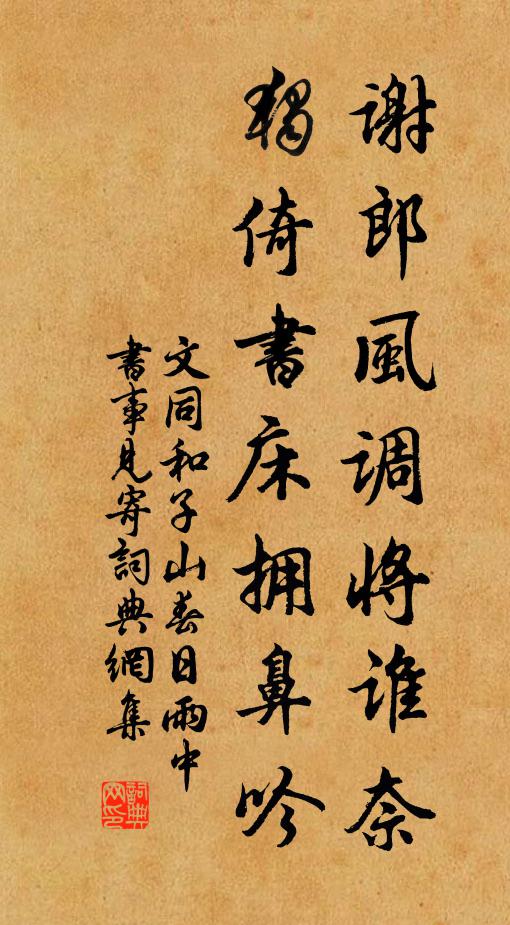 谢郎風调将谁奈
独倚書床拥鼻吟
文同和子山春日雨中
書事見寄詞典網集
詞典网印